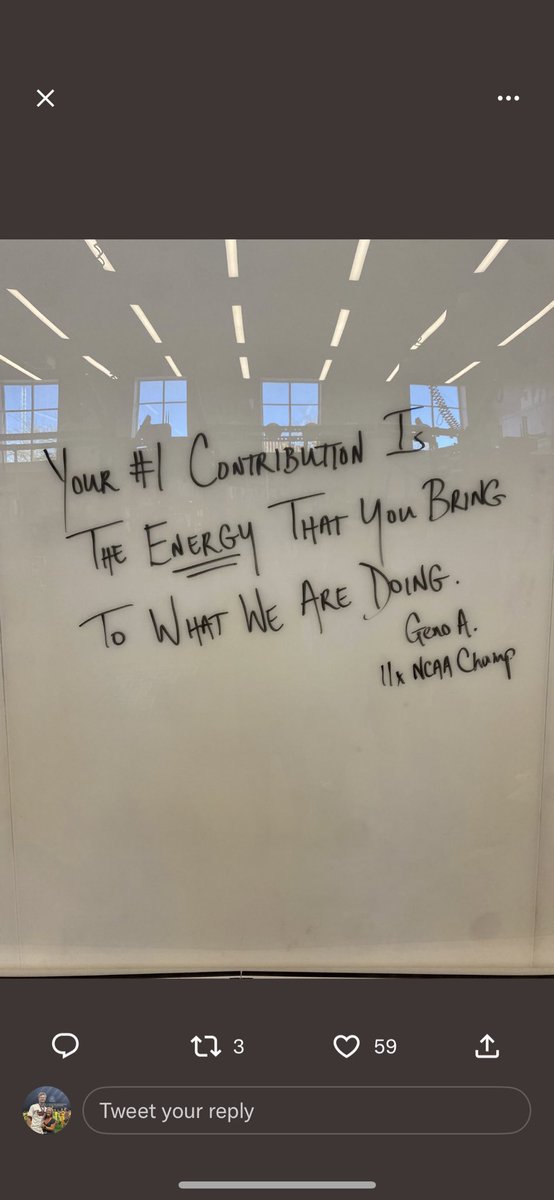 Your #1 Contribution Is
The Energy That You Bring
To What We Are Doing.
Geno A.
11x NCAA Champ
3
59
Tweet your reply